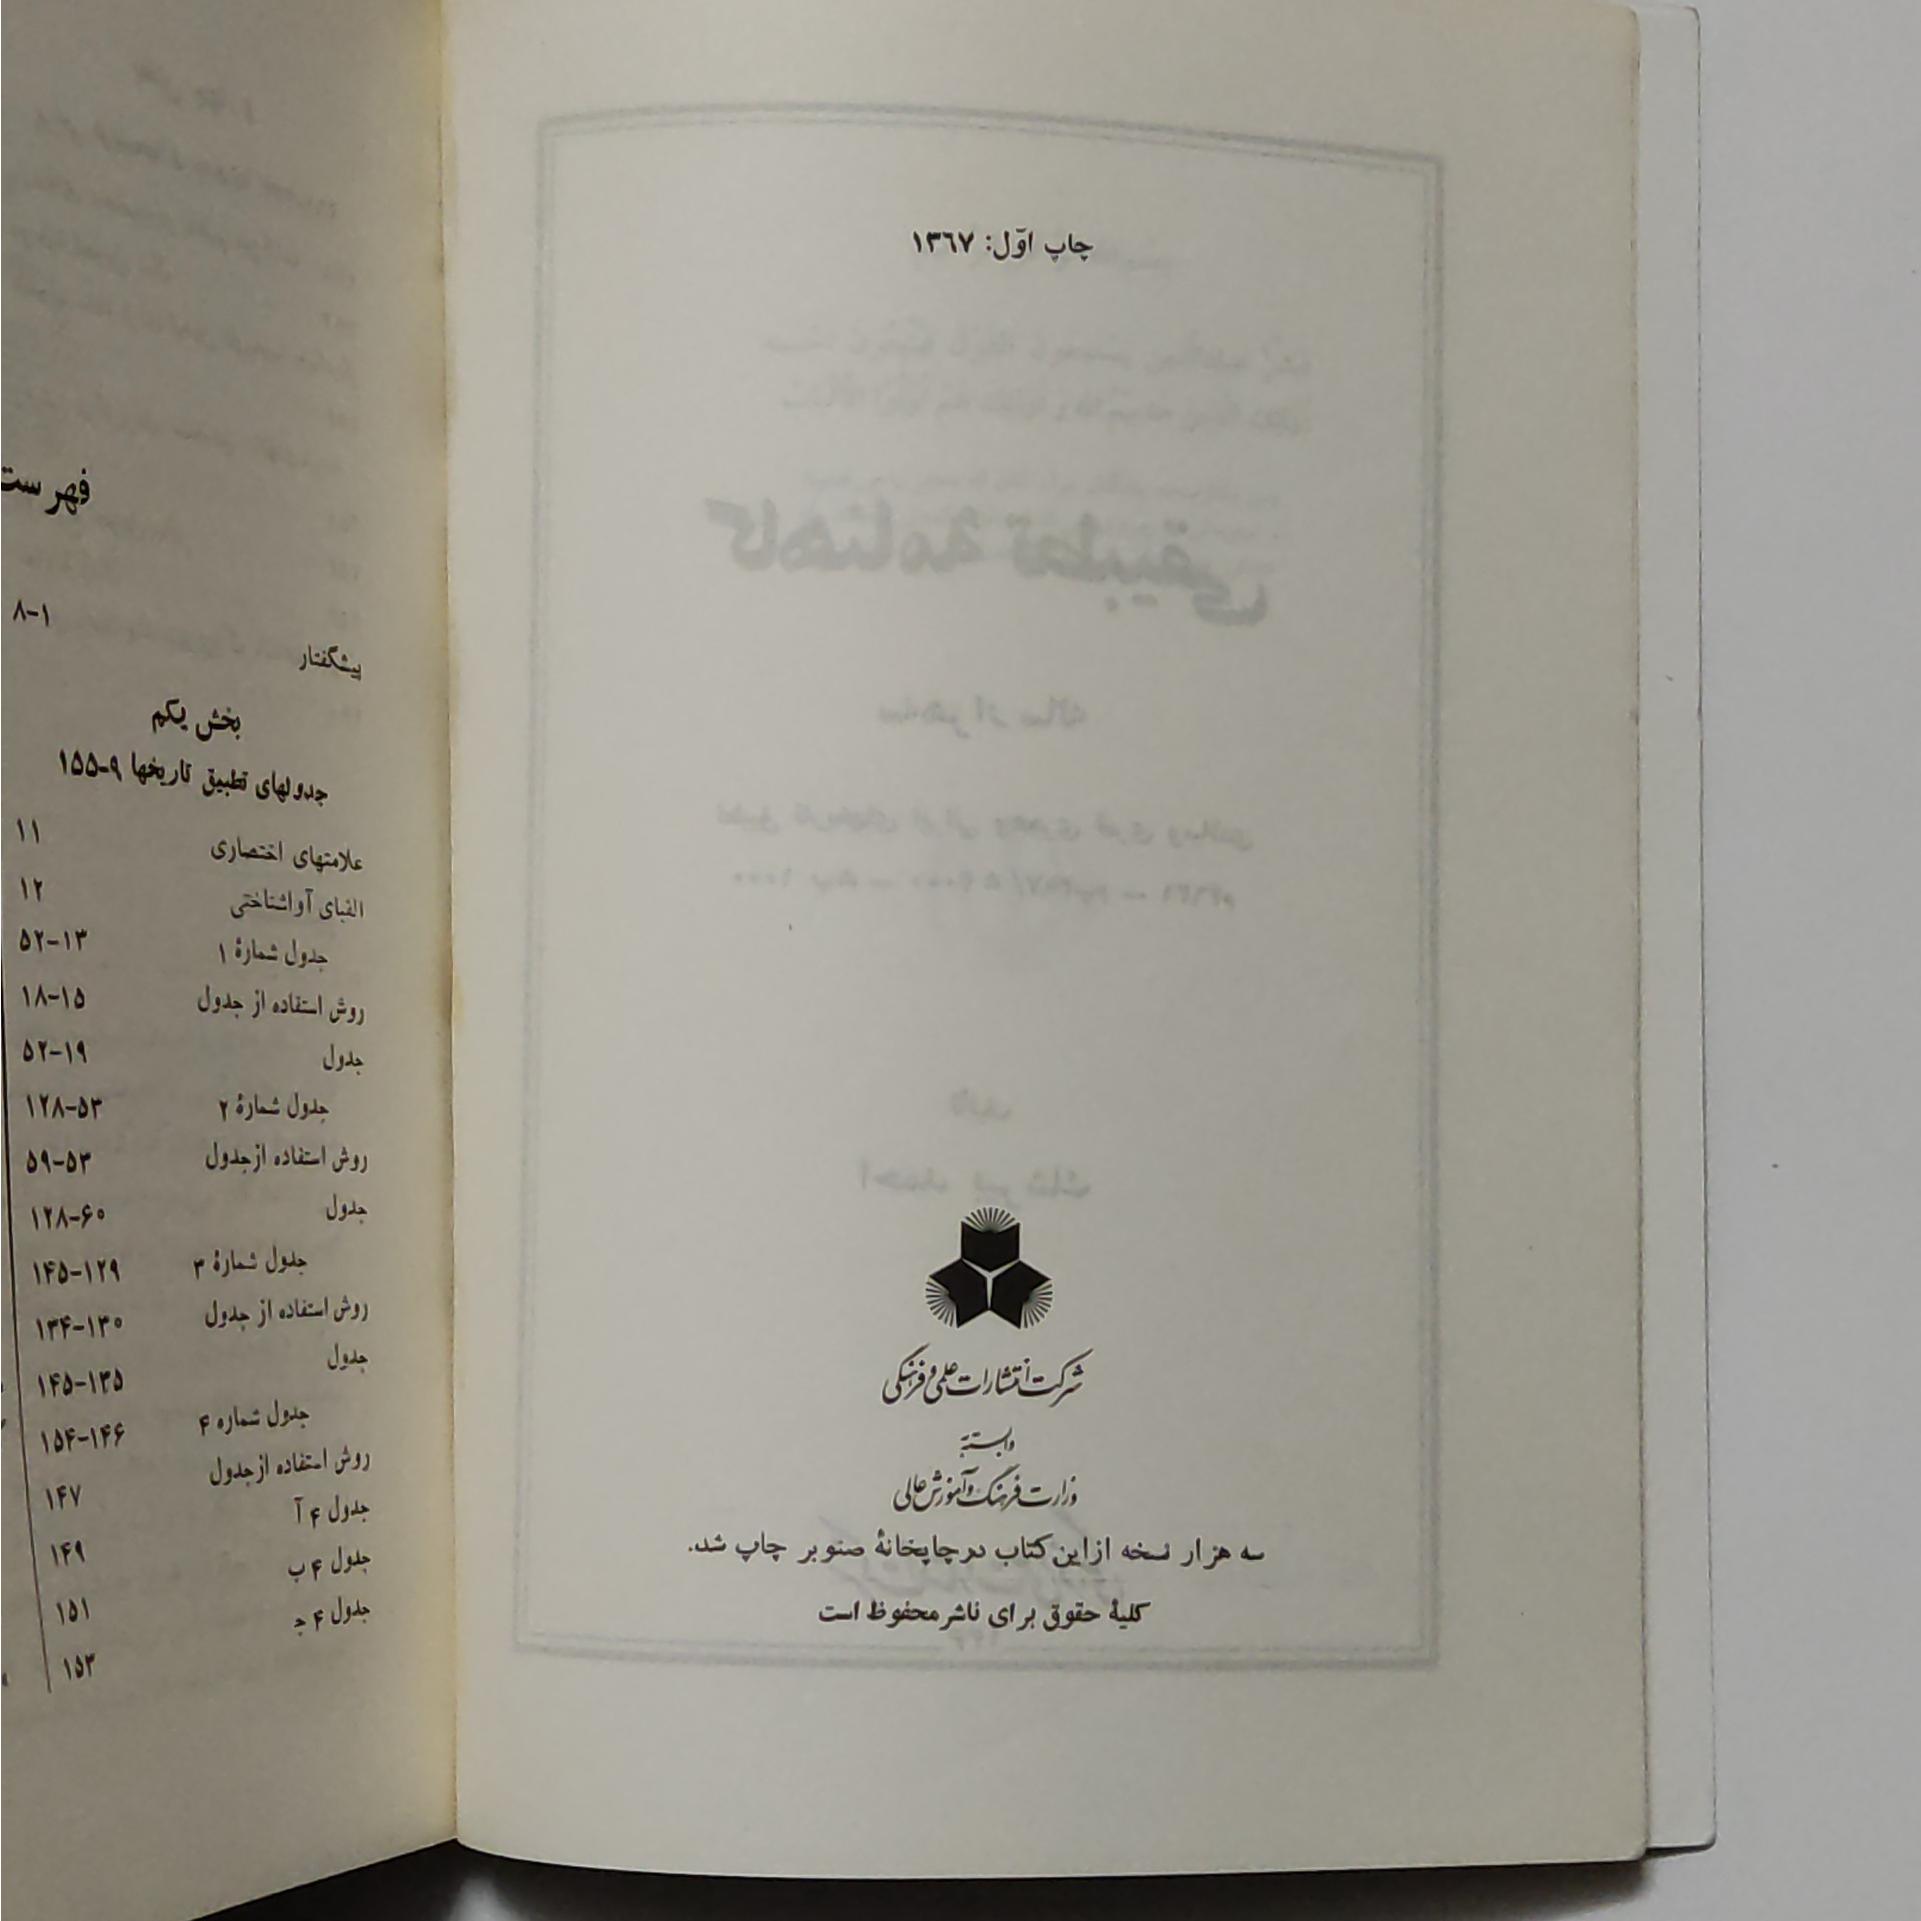 چاپ اوّل: ۱۳۶۷
شرکت انتشارات علمی و فرهنگی
وابسته به
وزارت فرهنگ و آموزش عالی
سه هزار نسخه از این کتاب در چاپخانهٔ صنوبر چاپ شد.
کلیهٔ حقوق برای ناشر محفوظ است
فهرست
پیشگفتار ۱-۸
بخش یکم
جدولهای تطبیق تاریخها ۹-۱۵۵
علامتهای اختصاری ۱۱
الفبای آواشناختی ۱۲
جدول شمارهٔ ۱ ۱۳-۵۲
روش استفاده از جدول ۱۵-۱۸
جدول ۱۹-۵۲
جدول شمارهٔ ۲ ۵۳-۱۲۸
روش استفاده از جدول ۵۳-۵۹
جدول ۶۰-۱۲۸
جدول شمارهٔ ۳ ۱۲۹-۱۴۵
روش استفاده از جدول ۱۳۰-۱۳۴
جدول ۱۳۵-۱۴۵
جدول شماره ۴ ۱۴۶-۱۵۴
روش استفاده از جدول ۱۴۷
جدول ۴ آ ۱۴۹
جدول ۴ ب ۱۵۱
جدول ۴ ج ۱۵۳